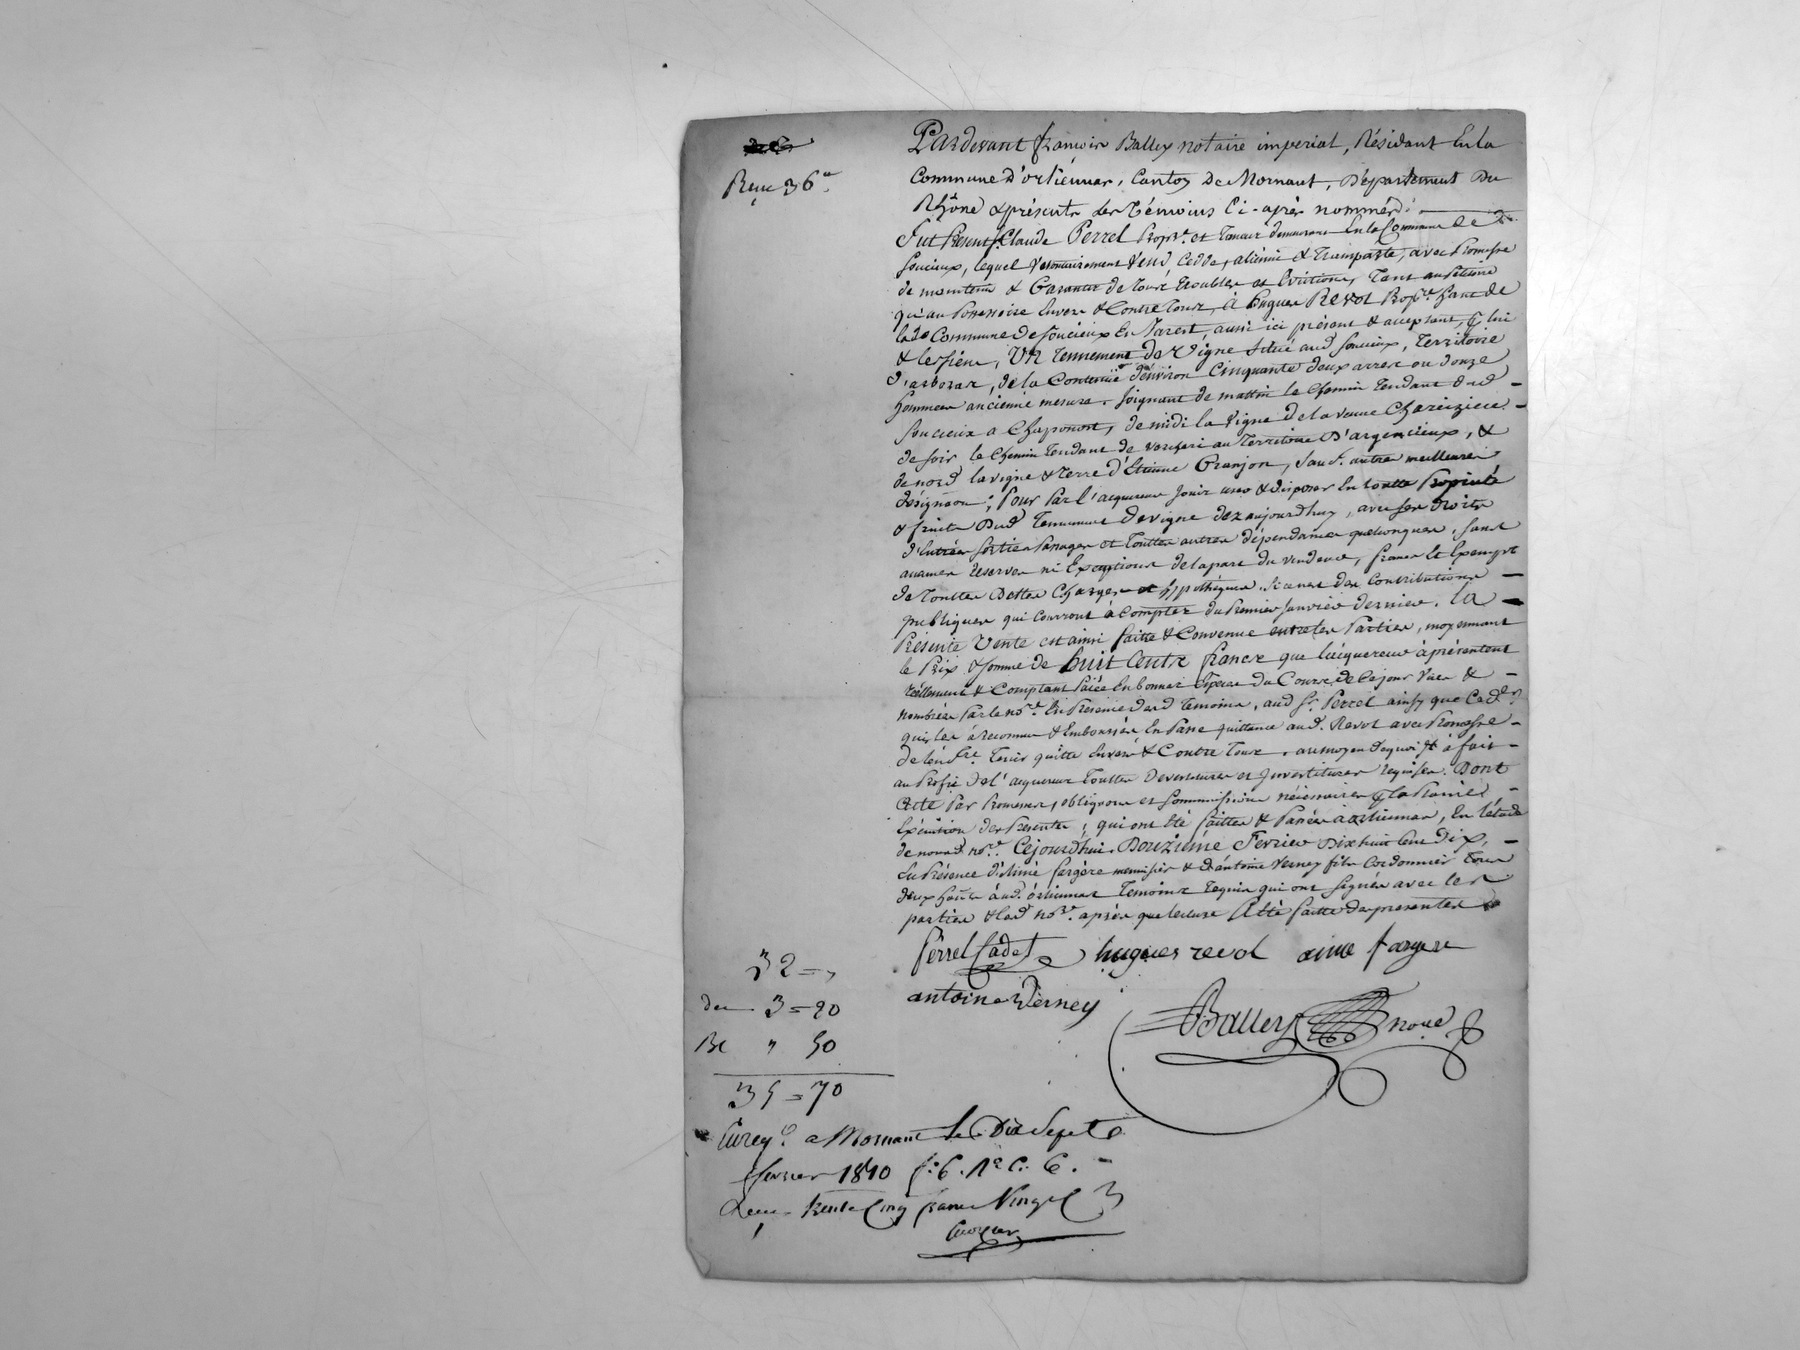 Reçu 36
Pardevant françois Balley notaire imperial, Résidant En la
Commune d'orliénnas, Canton De Mornant, Département Du
Rhône & présents les témoins Ci-après nommés :
fut Présent Sr Claude Perrel Propre et Tanneur demeurant En la Commune de
soucieux, lequel vend Cedde, aliénne & Transporte, avec Promesse
de maintenir & Garantir de tous troubles et Evictions, Tant au Petitoire
qu'au Possessoire Envers & Contre tous, à hugues Revol Propre hant de
lade Commune de soucieux En Jarest, aussi ici présent & acceptant, pr lui
& les siens, UN Tennement de Vigne situé aud soucieux, Territoire
d'arboras, de la Contenüe d'environ Cinquante deux arres ou douze
hommées anciénne mesure, Joignant de matin le Chemin tendant dud
soucieux a Chaponost, de midi la Vigne de la veuve
de soir le Chemin tendant de au Territoire D'argencieux, &
de nord la vigne & terre d'Etienne Granjon, sauf autres meilleures
désignaon ; Pour Par l'acquereur jouir user & disposer En toutte Proprieté
& fruits Dud Tennement de vigne dez aujourdhuy, avec ses droits
d'Entrées sorties Passages et touttes autres dépendances quelconques, sans
aucunes réserves ni Exceptions de la part du vendeur, franc Et Exempt
de touttes Dettes Charges et hypothèques, Si ce n'est des Contributions
publiques qui Courront à Compter du Premier Janvier dernier. La
Présente Vente est ainsi faitte & Convenue entre les Parties, moyennant
le Prix & somme de huit Cents francs que l'acquereur à présentent
réellement & Comptant Païée En bonnes Espèces du Cours de Ce jour Vues &
nombrées Par le nore En Présence desd temoins, aud Sr Perrel ainsy que Ced
qui les à Reconnu & Emboursées, En Passe quittance aud. Revol avec Promesse
de l'en fre Tenir quitte Envers & Contre Tous. au moyen dequoi il à fait
au Profit de l'acquereur touttes Devestitures et Investitures requises. Dont
Acte Par Promesses, obligaons et soummissions nécessaires pr la Pleine
Exécution des Presentes ; qui ont Eté faittes & Passées à orliennas, En l'étude
de nousd nore. Cejourd'hui. Douzième Fevrier Dix huit Cent Dix,
En Présence d'Aimé fargère menuisier & d'antoine Verney fils Cordonnier tous
deux hants aud. orliennas temoins requis qui ont signés avec les
parties & led nore. après que lecture à été faitte des presentes
Perrel Cadet hugues revol aime fargere
antoine Verney
Balley nore
32 = "
de 3 = 20
Be " 50
35 = 70
Enregé a Mornant le Dix Sept
fevrier 1810 fo 6. Ro C. 6.
Reçu trente Cinq francs Vingt C